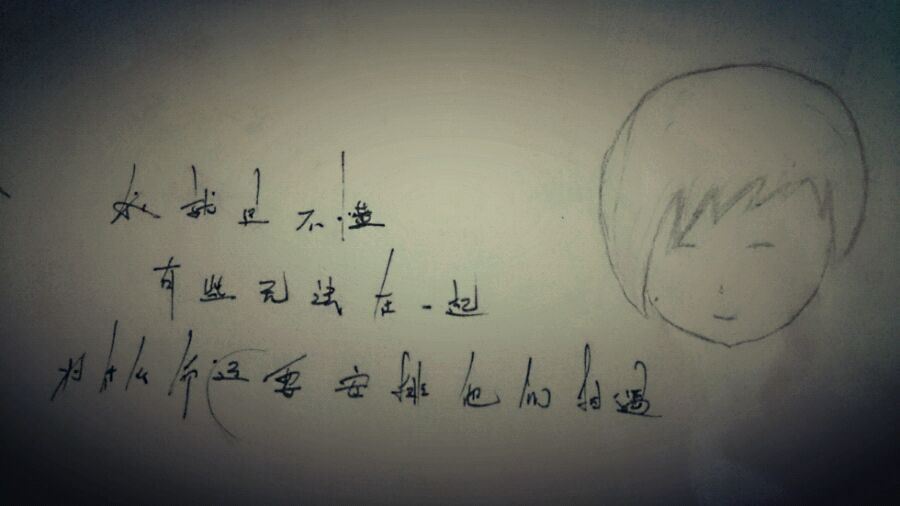 我就是不懂
有些无法在一起
为什么命运要安排他们相遇